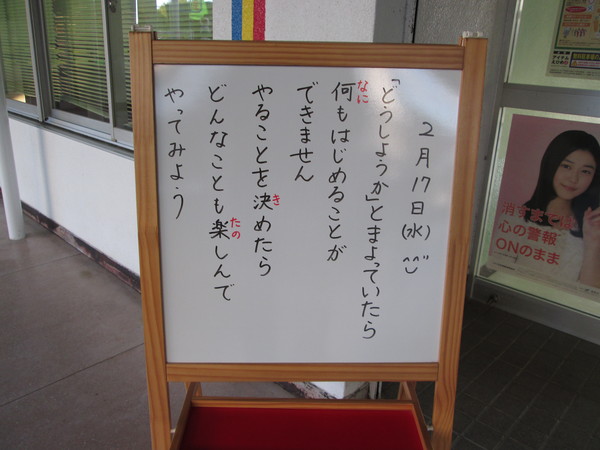 2月17日(水)
「どうしようか」とまよっていたら
何もはじめることが
できません
やることを決めたら
どんなことも楽しんで
やってみよう
なに
き
たの
消すまでは
心の警報
ONのまま